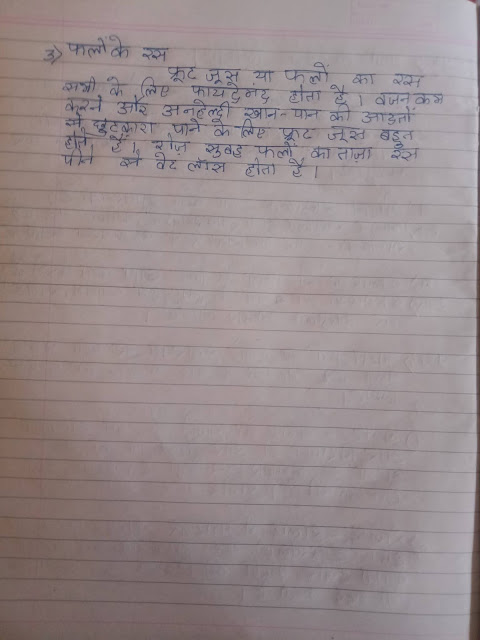 3) फलों के रस
फ्रूट जूस या फलों का रस
सभी के लिए फायदेमंद होता है। वजन कम
करने और अनहेल्दी खान-पान की आदतों
से छुटकारा पाने के लिए फ्रूट जूस बहुत
होते हैं। रोज़ सुबह फलों का ताज़ा रस
पीने से वेट लॉस होता है।